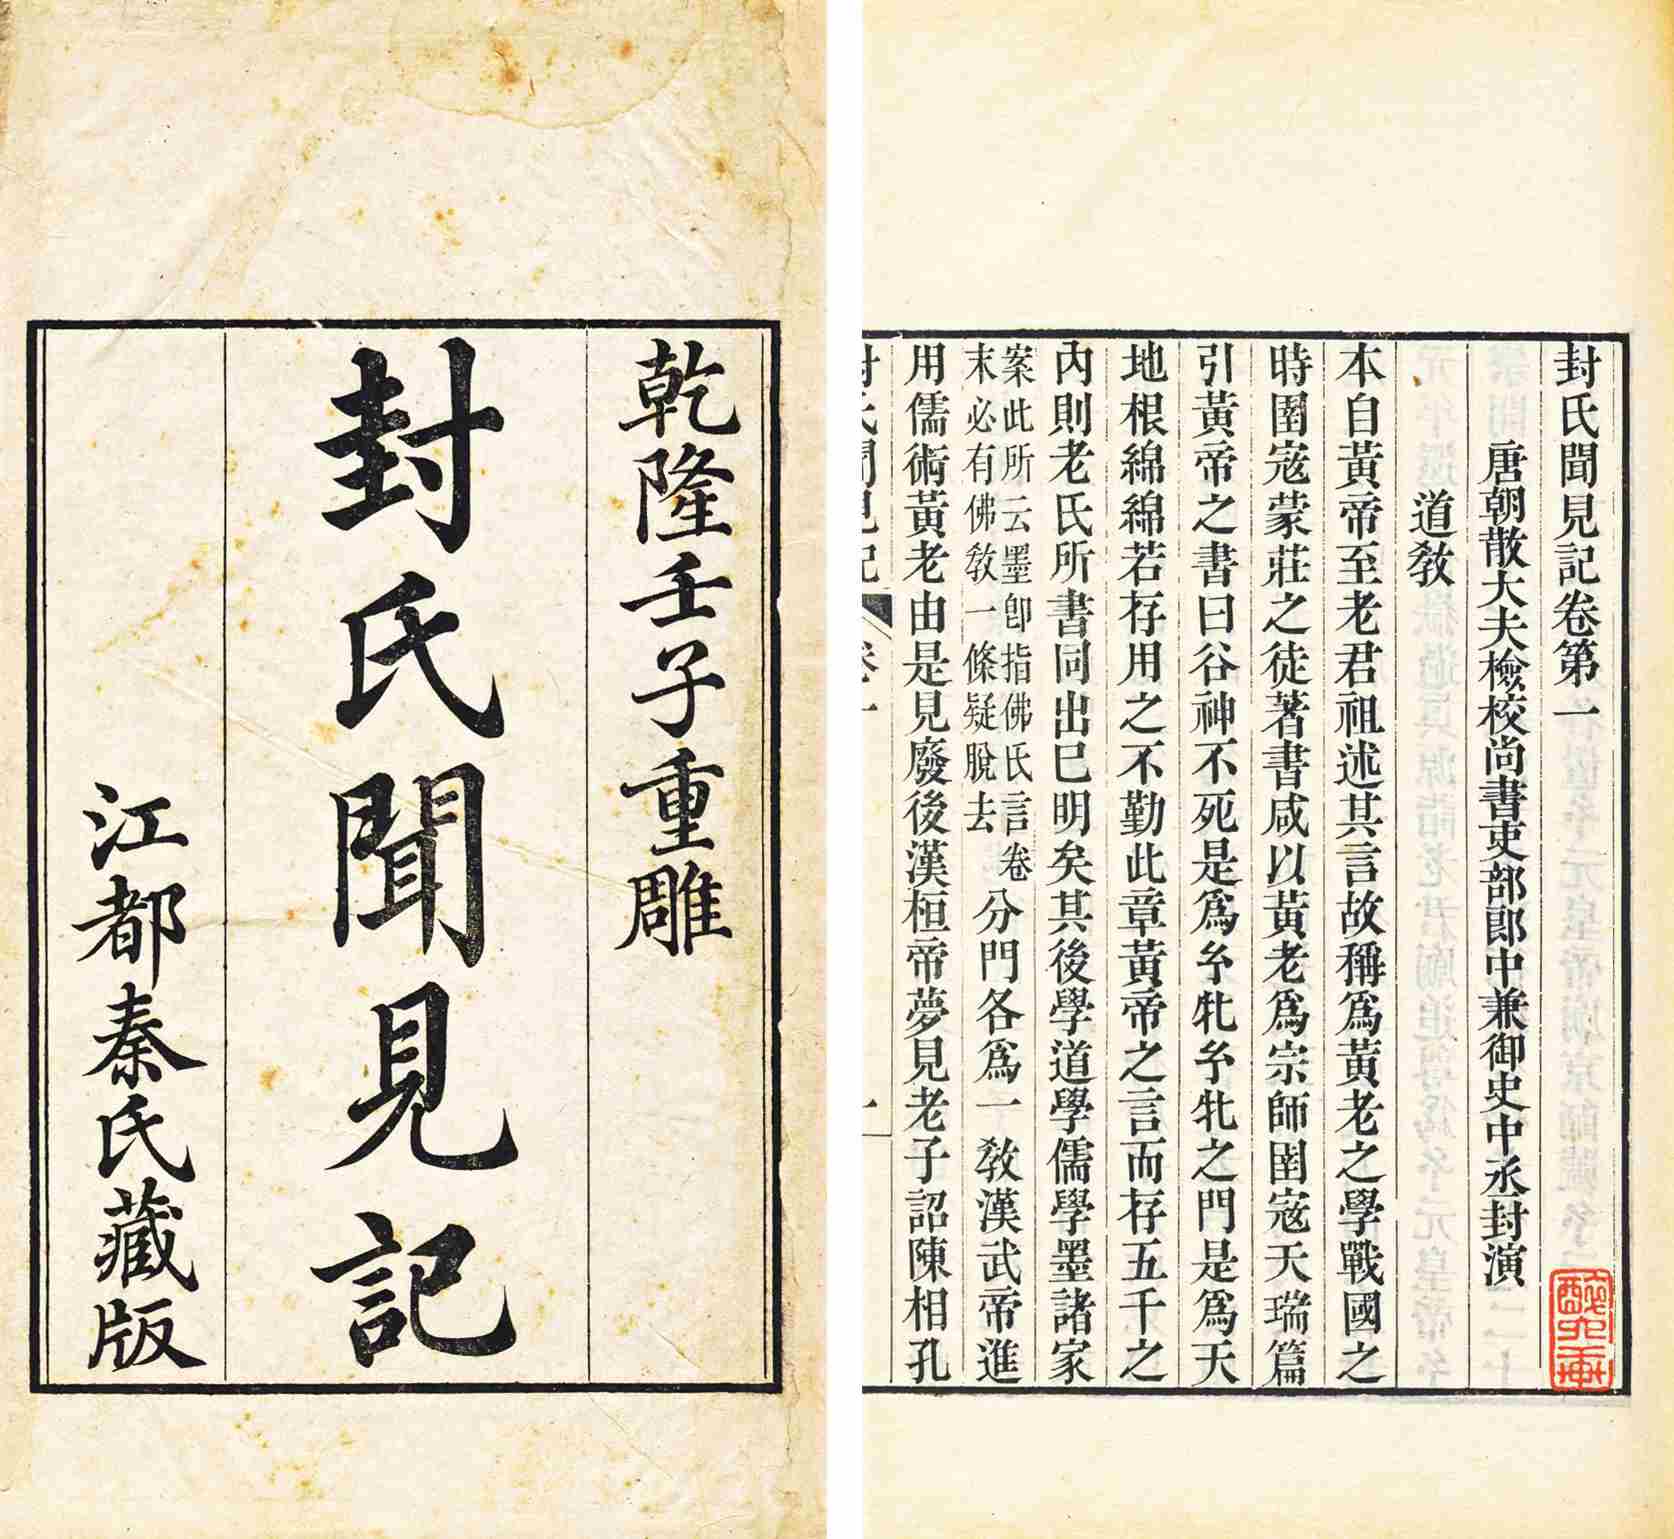 乾隆壬子重雕
封氏聞見記
江都秦氏藏版
封氏聞見記卷第一
唐朝散大夫檢校尚書吏部郎中兼御史中丞封演
道教
本自黃帝至老君祖述其言故稱為黃老之學戰國之
時圄寇蒙莊之徒著書咸以黃老為宗師圄寇天瑞篇
引黃帝之書曰谷神不死是為𤣥牝𤣥牝之門是為天
地根綿綿若存用之不勤此章黃帝之言而存五千之
內則老氏所書同出巳明矣其後學道學儒學墨諸家
案此所云墨卽指佛氏言卷
末必有佛教一條疑脫去
分門各為一教漢武帝進
用儒術黃老由是見廢後漢桓帝夢見老子詔陳相孔
封氏聞見記
卷一
一